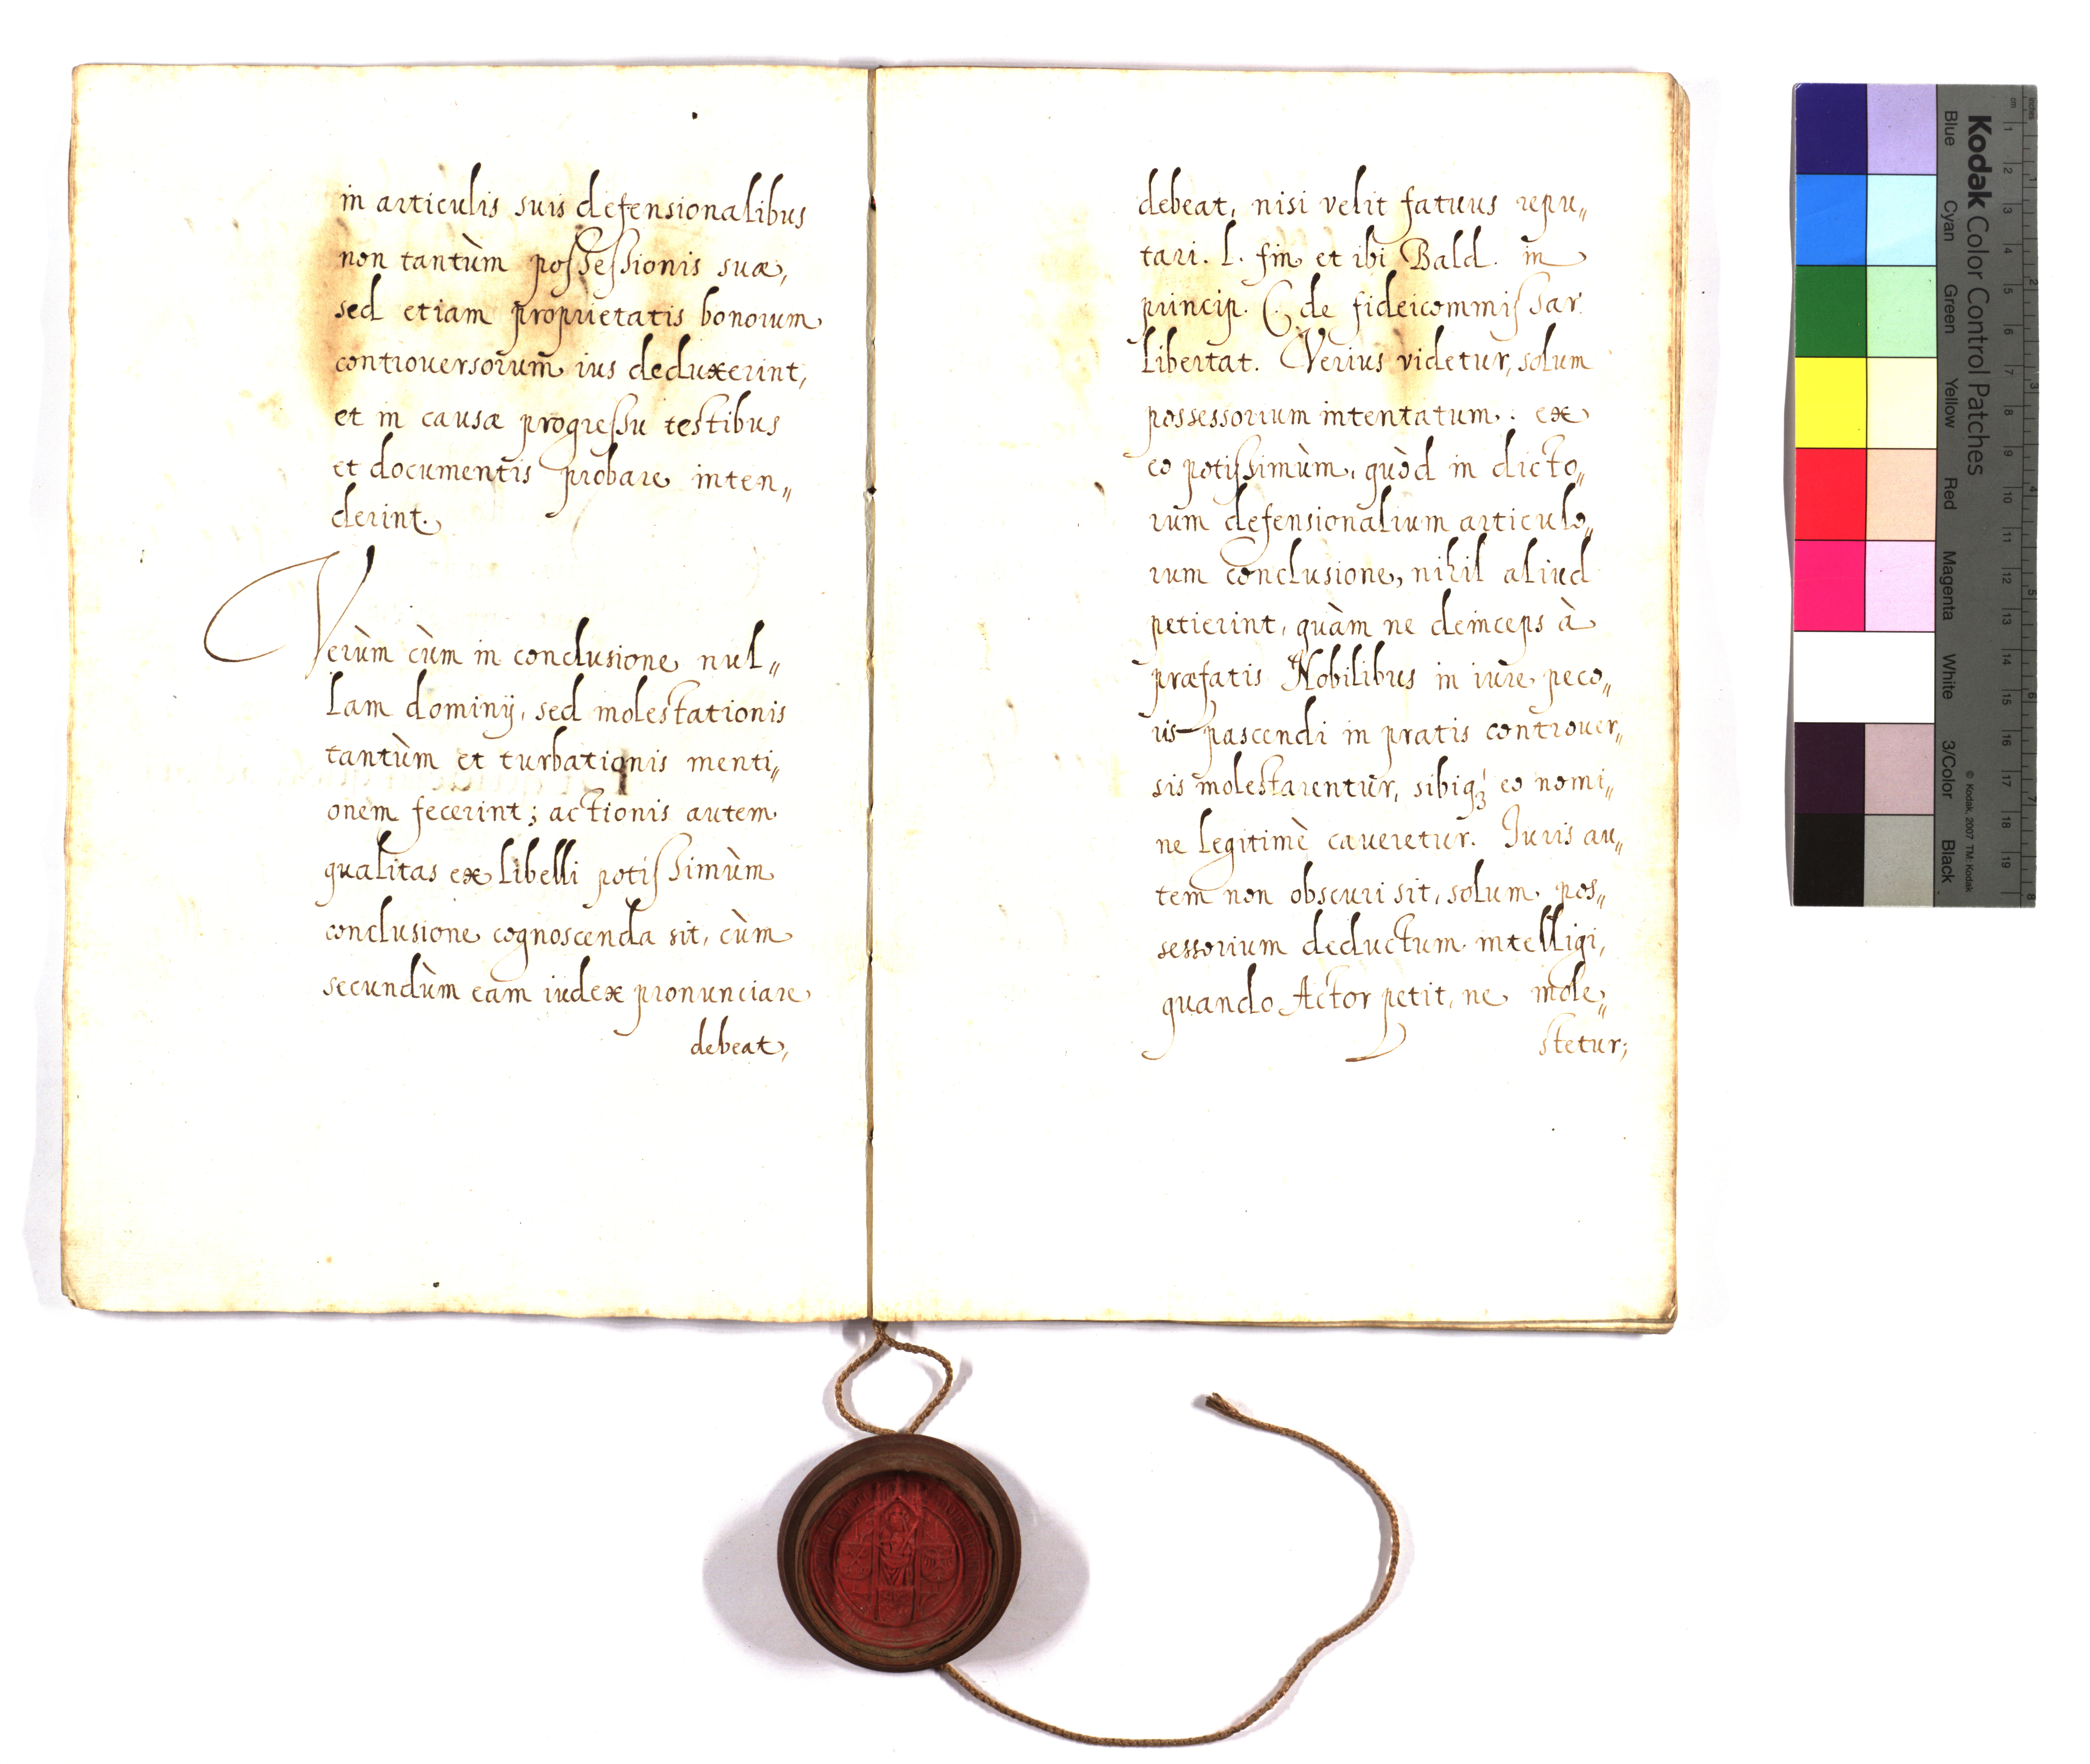 in articulis suis defensionalibus
non tantùm possessionis suæ,
sed etiam proprietatis bonorum
controuersorum ius deduxerint,
et in causæ progressu testibus
et documentis probare inten„
derint.
Verùm cùm in conclusione nul„
lam dominij, sed molestationis
tantùm et turbationis menti„
onem fecerint; actionis autem
qualitas ex libelli potissimùm
conclusione cognoscenda sit, cùm
secundùm eam iudex pronunciare
debeat,
debeat, nisi velit fatuus repu„
tari. l. fin et ibi Bald. in
princip. C. de fideicommissar.
libertat. Verius videtur, solum
possessorium intentatum: ex
eo potissimùm, quòd in dicto„
rum defensionalium articulo„
rum conclusione, nihil aliud
petierint, quàm ne deinceps à
præfatis Nobilibus in iure peco„
ris pascendi in pratis controuer„
sis molestarentur, sibiq́ꝫ eo nomi„
ne legitimè caueretur. Iuris au„
tem non obscuri sit, solum pos„
sessorium deductum intelligi,
quando Actor petit, ne mole„
stetur;
Kodak Color Control Patches
Blue Cyan Green Yellow Red Magenta White 3/Color Black
© Kodak, 2007 TM: Kodak
cm 1 2 3 4 5 6 7 8 9 10 11 12 13 14 15 16 17 18 19
inches 1 2 3 4 5 6 7 8